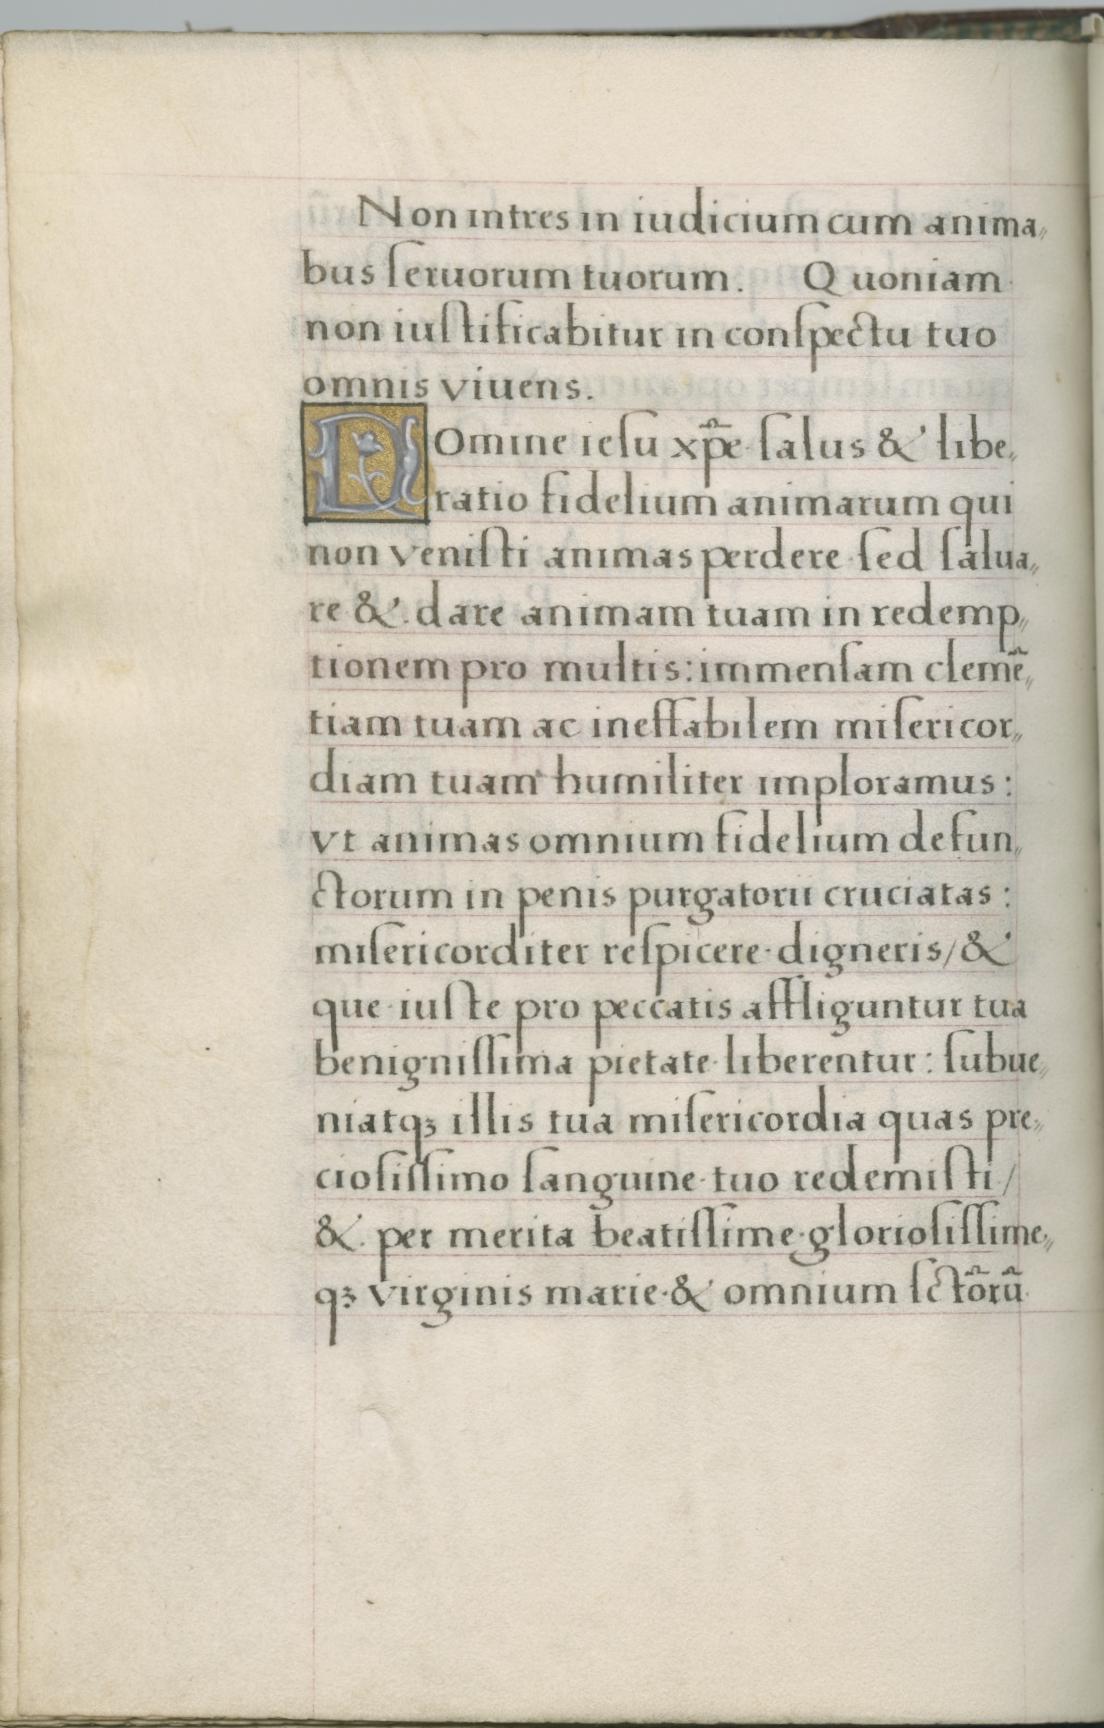 Non intres in iudicium cum anima„
bus ſeruorum tuorum. Quoniam
non iuſtificabitur in conſpectu tuo
omnis viuens.
Domine ieſu xp̄e ſalus & libe„
ratio fidelium animarum qui
non veniſti animas perdere ſed ſalua„
re & dare animam tuam in redemp„
tionem pro multis: immenſam clemē„
tiam tuam ac ineffabilem miſericor„
diam tuam humiliter imploramus:
vt animas omnium fidelium defun„
ctorum in penis purgatorii cruciatas:
miſericorditer reſpicere digneris/ &
que iuſte pro peccatis affliguntur tua
benigniſſima pietate liberentur: ſubue„
niatqꝫ illis tua miſericordia quas pre„
cioſiſſimo ſanguine tuo redemiſti/
& per merita beatiſſime glorioſiſſime„
qꝫ virginis marie & omnium ſctōrū